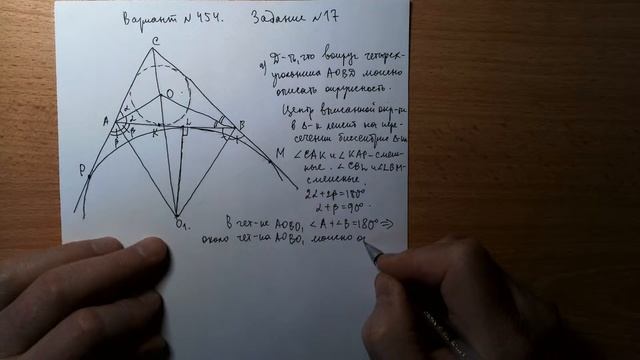 Вариант №454. Задание №17
C
O
A
α
α
K
L
B
β
β
P
M
O₁.
а) Д-ть, что вокруг четырех-
угольника AOBO можно
описать окружность.
Центр вписанной окр-ти
в Δ-к лежит на пере-
сечении биссектрис Δ-ка
∠CAK и ∠KAP - смеж-
ные. ∠CBL и ∠LBM -
смежные.
2α+2β=180°
α+β=90°.
В чет-ке AOBO₁ ∠A+∠B=180° ⇒
около чет-ка AOBO₁ можно о